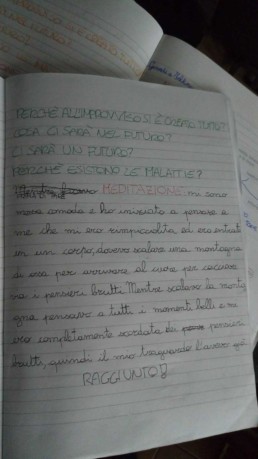 PERCHÉ ALL'IMPROVVISO SI È CHIUSO TUTTO?
COSA CI SARÀ NEL FUTURO?
CI SARÀ UN FUTURO?
PERCHÉ ESISTONO LE MALATTIE?
MEDITAZIONE: mi sono
messa comoda e ho iniziato a pensare a
me che mi ero rimpicciolita ed ero entrata
in un corpo, dovevo scalare una montagna
di ossa per arrivare al cuore per cacciare
via i pensieri brutti. Mentre scalavo la monta
gna pensavo a tutti i momenti belli e mi
ero completamente scordata dei pensieri
brutti, quindi il mio traguardo l'avevo già
RAGGIUNTO!